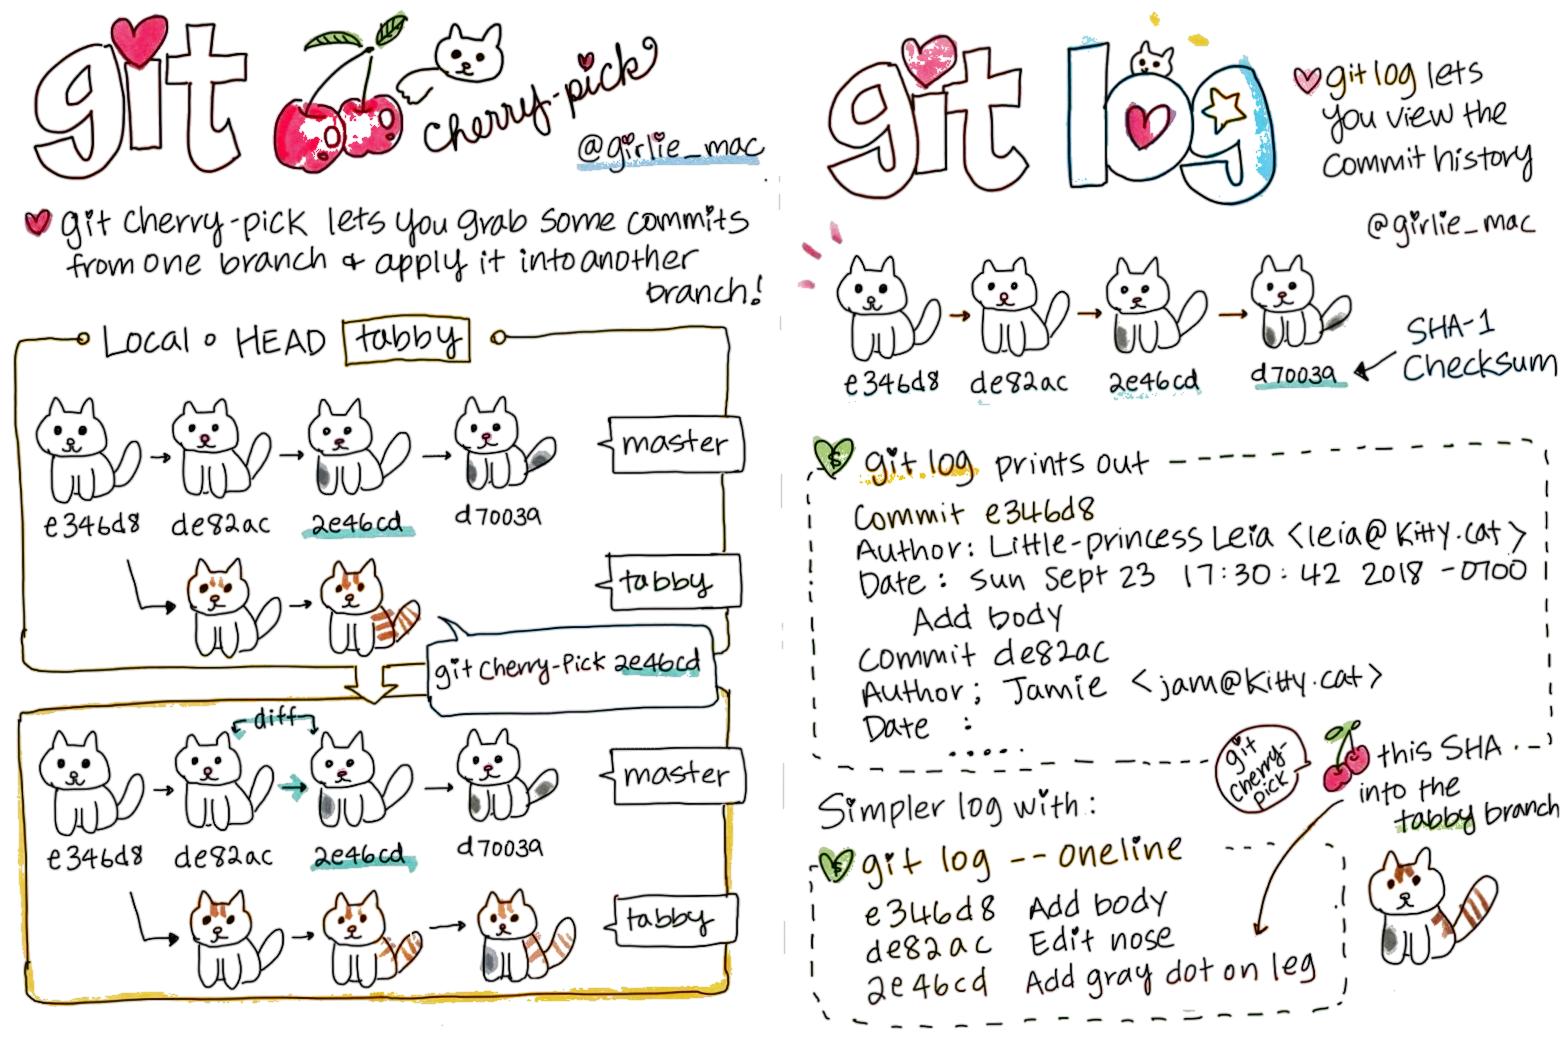 git cherry-pick
@girlie_mac
git cherry-pick lets you grab some commits
from one branch & apply it into another
branch!
Local • HEAD tabby
master
e346d8 de82ac 2e46cd d7003a
tabby
git cherry-pick 2e46cd
diff
master
e346d8 de82ac 2e46cd d7003a
tabby
git log
git log lets
you view the
commit history
@girlie_mac
e346d8 de82ac 2e46cd d7003a
SHA-1
Checksum
$ git log prints out
Commit e346d8
Author: Little-princess Leia <leia@kitty.cat>
Date : Sun Sept 23 17:30:42 2018 -0700
Add body
Commit de82ac
Author; Jamie <jam@kitty.cat>
Date :
.....
git
cherry-
pick
this SHA
into the
tabby branch
Simpler log with:
$ git log --oneline
e346d8 Add body
de82ac Edit nose
2e46cd Add gray dot on leg